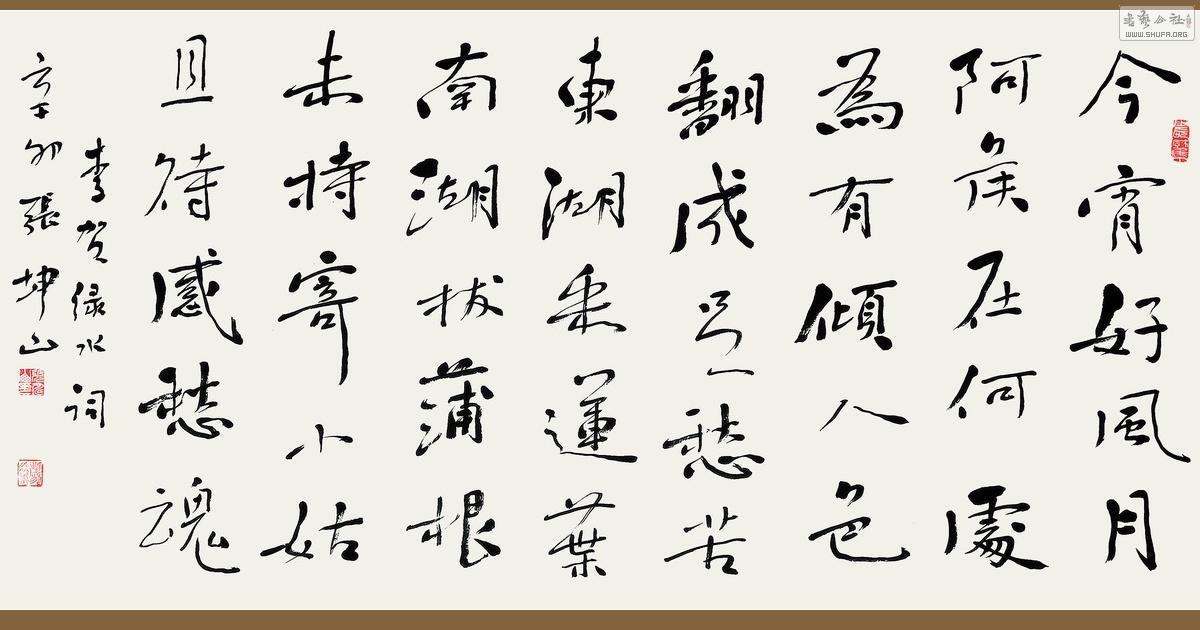 今宵好風月
阿侯在何處
為有傾人色
翻成足愁苦
東湖采蓮葉
南湖拔蒲根
未持寄小姑
且持感愁魂
李賀绿水词
辛卯張坤山
书艺公社
WWW.SHUFA.ORG